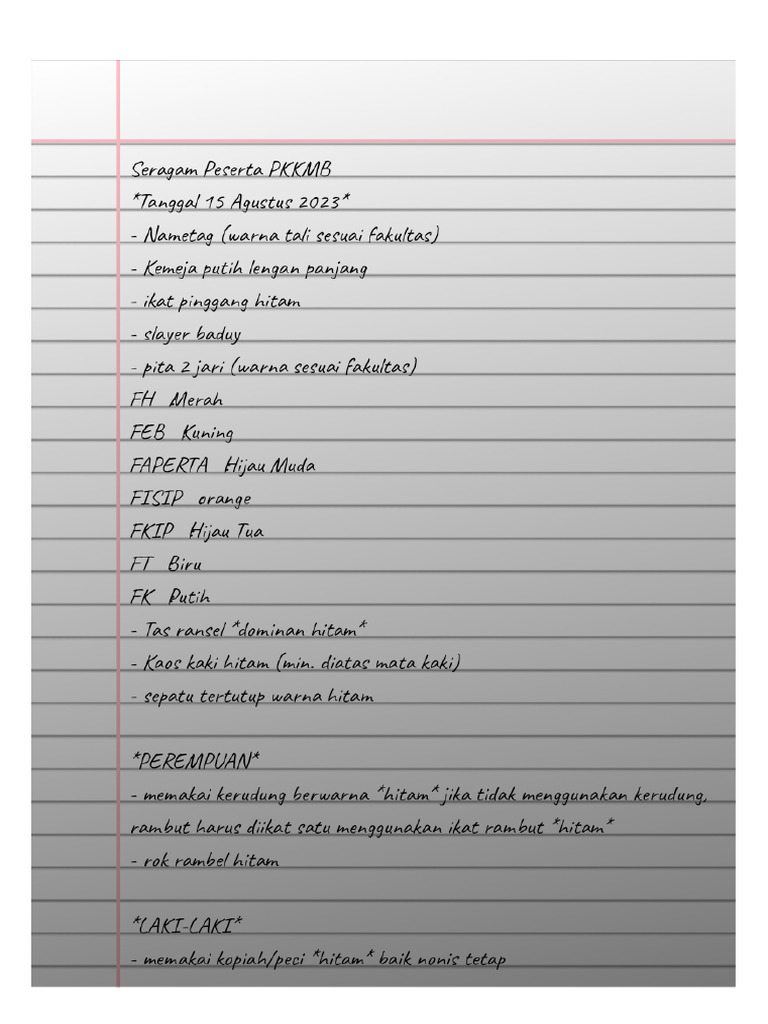 Seragam Peserta PKKMB
*Tanggal 15 Agustus 2023*
- Nametag (warna tali sesuai fakultas)
- Kemeja putih lengan panjang
- ikat pinggang hitam
- slayer baduy
- pita 2 jari (warna sesuai fakultas)
FH Merah
FEB Kuning
FAPERTA Hijau Muda
FISIP orange
FKIP Hijau Tua
FT Biru
FK Putih
- Tas ransel *dominan hitam*
- Kaos kaki hitam (min. diatas mata kaki)
- sepatu tertutup warna hitam
*PEREMPUAN*
- memakai kerudung berwarna *hitam* jika tidak menggunakan kerudung,
rambut harus diikat satu menggunakan ikat rambut *hitam*
- rok rambel hitam
*LAKI-LAKI*
- memakai kopiah/peci *hitam* baik nonis tetap